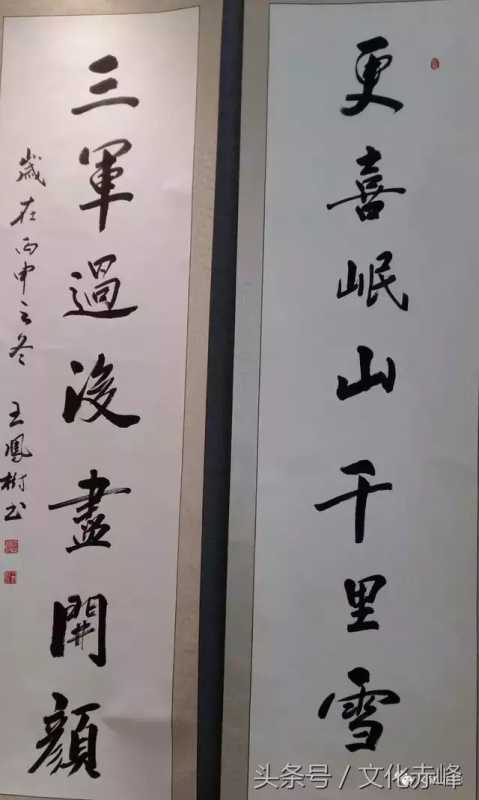 更喜岷山千里雪
三軍過後盡開顔
歲在丙申之冬 王鳳樹书
头条号／文化赤峰